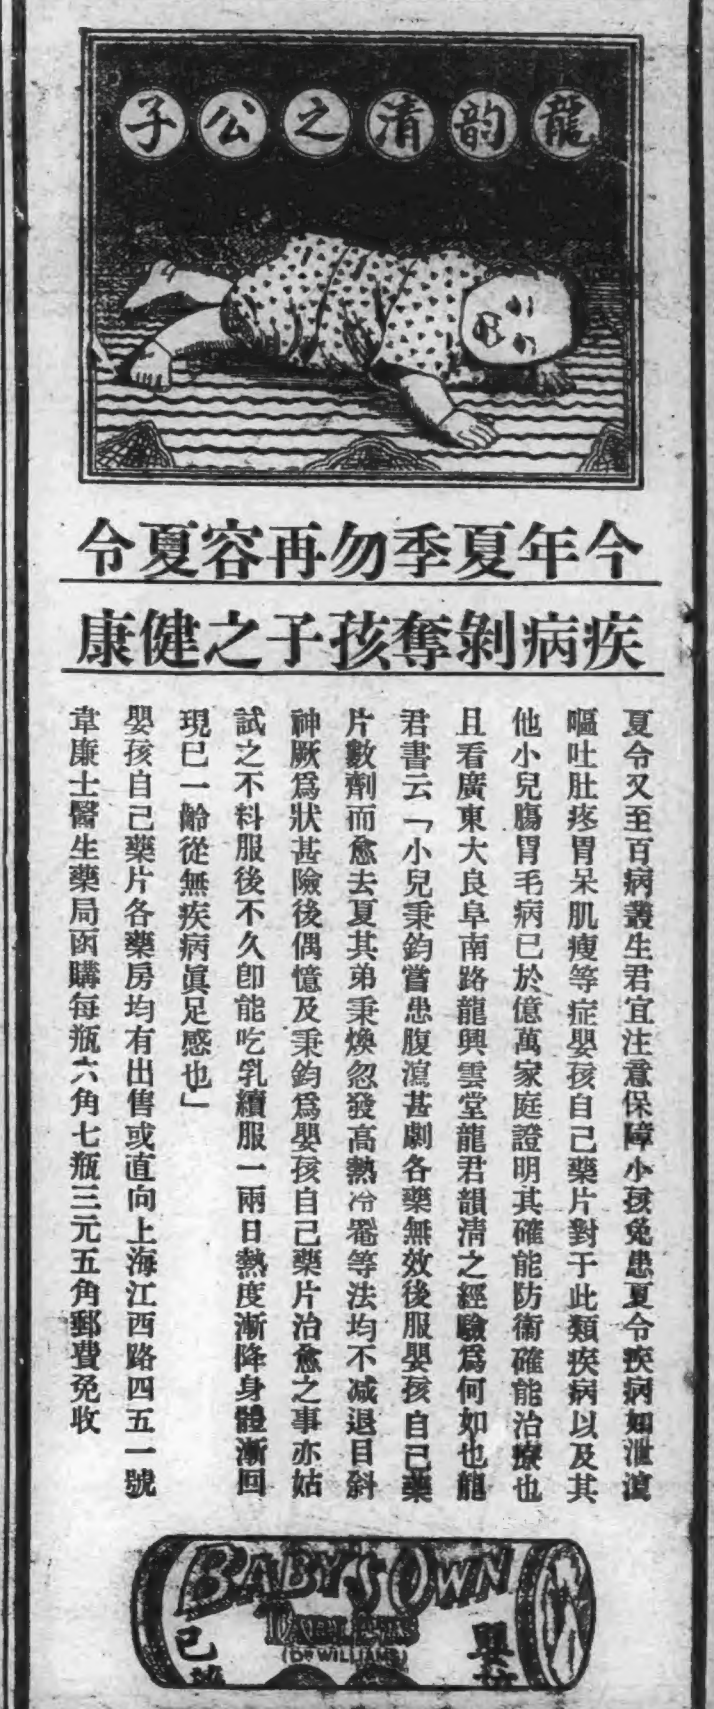 龍韵清之公子
今年夏季勿再容夏令
疾病剝奪孩子之健康
夏令又至百病叢生君宜注意保障小孩免患夏令疾病如泄瀉
嘔吐肚疼胃呆肌瘦等症嬰孩自己藥片對于此類疾病以及其
他小兒腸胃毛病已於億萬家庭證明其確能防衛確能治療也
且看廣東大良阜南路龍興雲堂龍君韻清之經驗爲何如也龍
君書云「小兒秉鈞嘗患腹瀉甚劇各藥無效後服嬰孩自己藥
片數劑而愈去夏其弟秉煥忽發高熱冷罨等法均不减退目斜
神厥爲狀甚險後偶憶及秉鈞爲嬰孩自己藥片治愈之事亦姑
試之不料服後不久卽能吃乳續服一兩日熱度漸降身體漸回
現已一齡從無疾病眞足感也」
嬰孩自己藥片各藥房均有出售或直向上海江西路四五一號
韋廉士醫生藥局函購每瓶六角七瓶三元五角郵費免收
BABY'S OWN
TABLETS
(DR WILLIAMS)
嬰
己